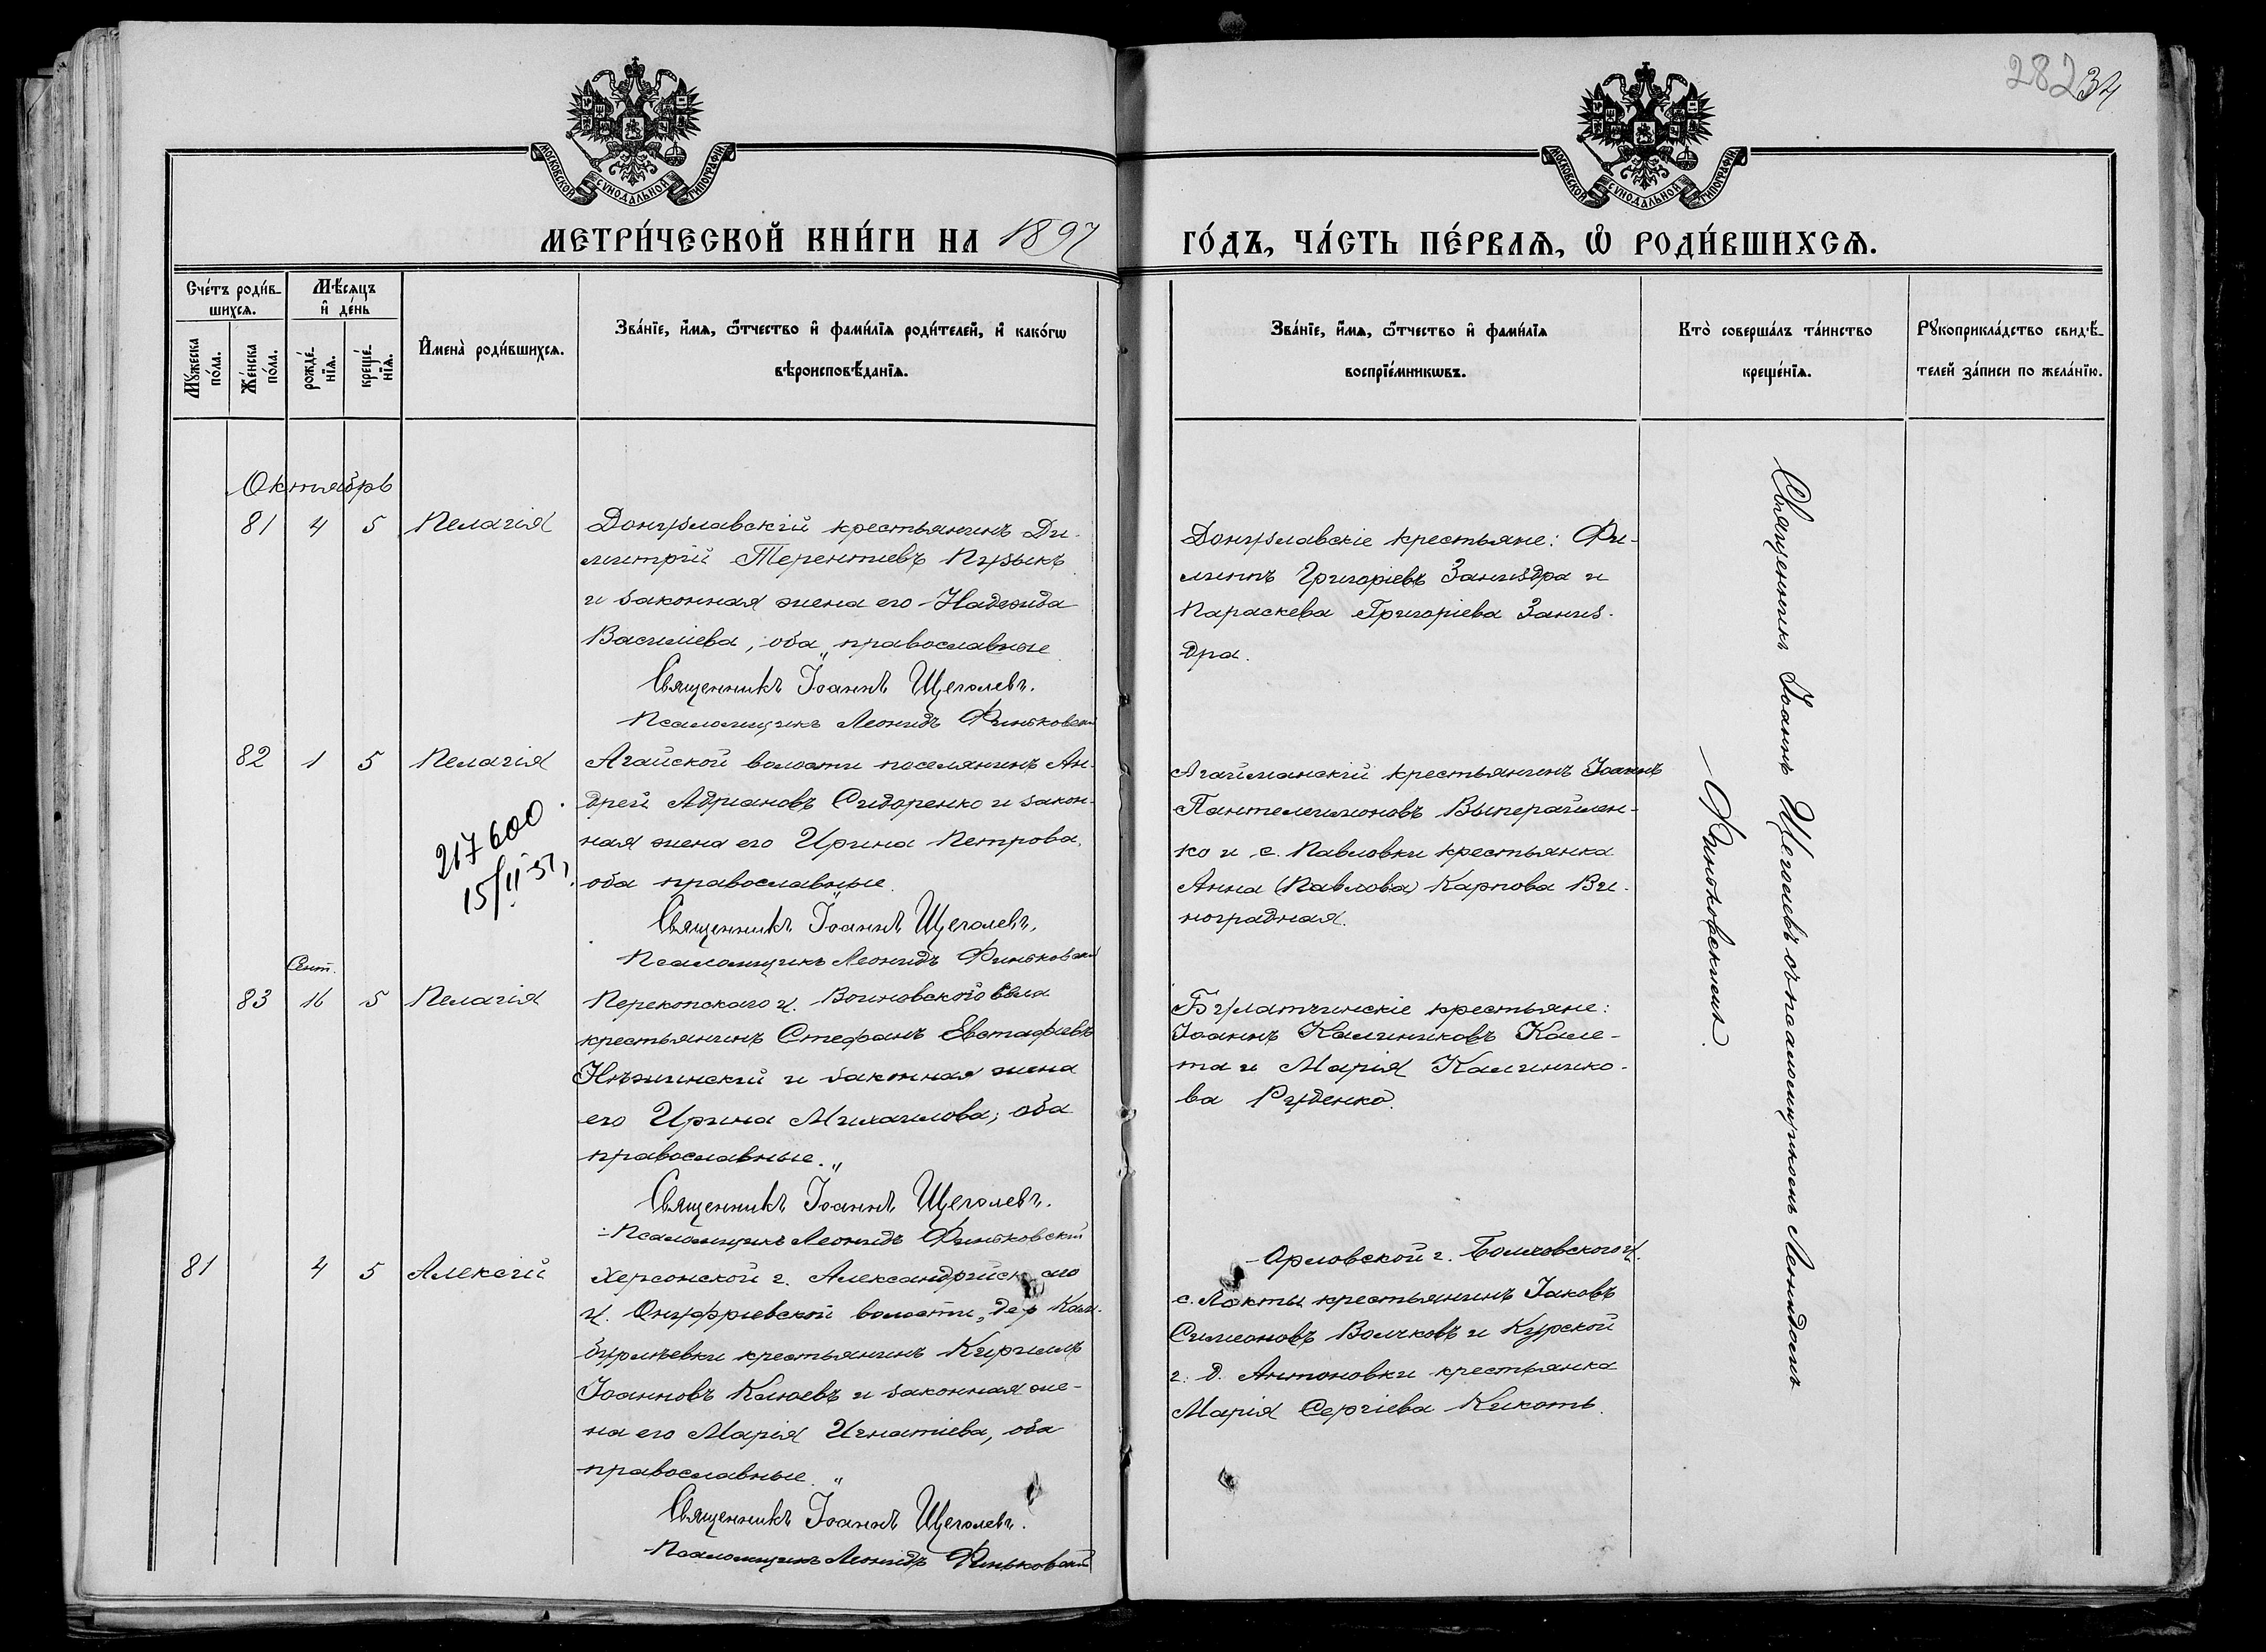 282 34
МОСКОВСКОЙ СѴНОДАЛЬНОЙ ТИПОГРАФІИ
МОСКОВСКОЙ СѴНОДАЛЬНОЙ ТИПОГРАФІИ
МЕТРИ́ЧЕСКОЙ КНИ́ГИ НА 1897
ГО́ДЪ, ЧА́СТЬ ПЕ́РВАѦ, Ѽ РОДИ́ВШИХСѦ.
Сче́тъ роди́в-
шихсѧ.
Мѣ́сѧцъ
и҆ де́нь
Мꙋ́жеска
по́ла.
Же́нска
по́ла.
рожде́-
нїѧ.
креще́-
нїѧ.
И҆мена̀ роди́вшихсѧ.
Зва́нїе, и҆́мѧ, ѻ҆́тчество и҆ фами́лїѧ роди́телей, и҆ како́гѡ
вѣроисповѣ́данїѧ.
Зва́нїе, и҆́мѧ, ѻ҆́тчество и҆ фами́лїѧ
воспрїе́мникѡвъ.
Кто̀ соверша́лъ та́инство
креще́нїѧ.
Рꙋкоприкла́дство свидѣ́-
телей за́писи по жела́нїю.
Октябрь
81 4 5 Пелагія
Донузлавскій крестьянинъ Ди-
митрій Терентіевъ Пузыкъ
и законная жена его Надежда
Василіева, оба православные
Священникъ Іоаннъ Щеголевъ.
Псаломщикъ Леонидъ Финьковскій
Донузлавскіе крестьяне: Фи-
липпъ Григоріевъ Заниздра и
Параскева Григоріева Заниз-
дра.
82 1 5 Пелагія
217600
15/II 51
Агайской волости поселянинъ Ан-
дрей Адріановъ Сидоренко и закон-
ная жена его Ирина Петрова,
оба православные
Священникъ Іоаннъ Щеголевъ,
Псаломщикъ Леонидъ Финьковскій
Агайманскій крестьянинъ Іоаннъ
Пантелеимоновъ
ко и с. Павловки крестьянка
Анна (Павлова) Карпова Ви-
ноградная.
Сент.
83 16 5 Пелагія
Перекопскаго у. Воиновского вол
крестьянинъ Стефанъ Евстафіевъ
Нѣжинскій и законная жена
его Ирина Михаилова, оба
православные.
Священникъ Іоаннъ Щеголевъ.
Псаломщикъ Леонидъ Финьковскій
Булатчинскіе крестьяне:
Іоаннъ Калиниковъ Кале-
та и Марія Калинико-
ва Руденко.
81 4 5 Алексій
Херсонской г. Александрійскаго
у. Онуфріевской волости, дер Кам-
бурлѣевки крестьянинъ Кириллъ
Іоанновъ Клюевъ и законная же-
на его Марія Игнатіева, оба
православные.
Священникъ Іоаннъ Щеголевъ.
Псаломщикъ Леонидъ Финьковскій
Орловской г. Болховского у.
с. Локты крестьянинъ Іаковъ
Симеоновъ Волчковъ и Курской
г. д. Антоновки крестьянка
Марія Сергіева Кикоть.
Священникъ Іоаннъ Щеголевъ съ псаломщикомъ Леонидомъ
Финьковскимъ.